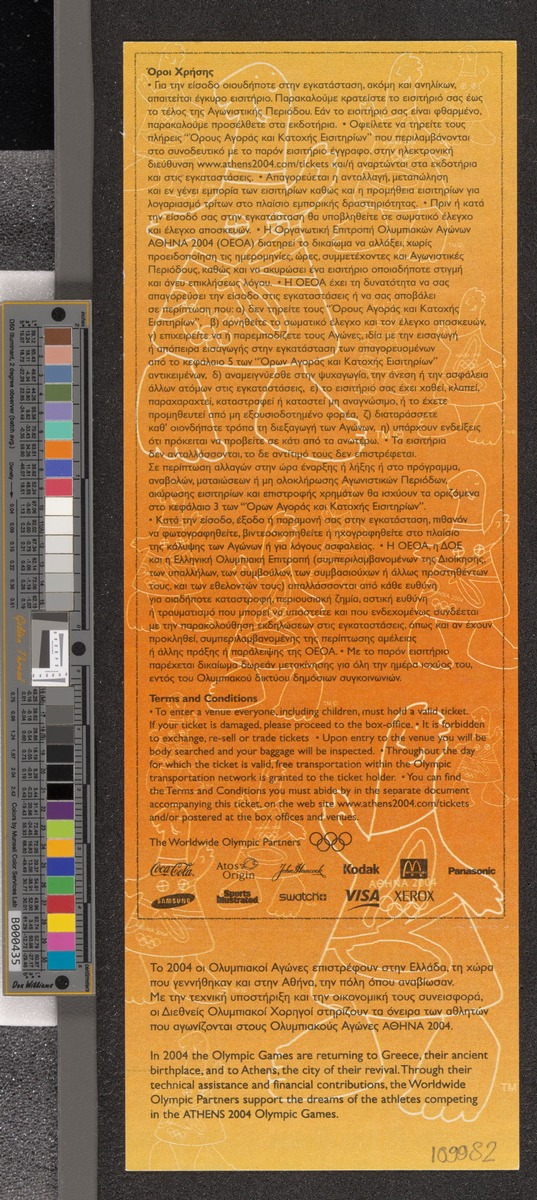 Όροι Χρήσης
• Για την είσοδο οιουδήποτε στην εγκατάσταση, ακόμη και ανηλίκων,
απαιτείται έγκυρο εισιτήριο. Παρακαλούμε κρατείστε το εισιτήριό σας έως
το τέλος της Αγωνιστικής Περιόδου. Εάν το εισιτήριό σας είναι φθαρμένο,
παρακαλούμε προσέλθετε στα εκδοτήρια. • Οφείλετε να τηρείτε τους
πλήρεις "Όρους Αγοράς και Κατοχής Εισιτηρίων" που περιλαμβάνονται
στο συνοδευτικό με το παρόν εισιτήριο έγγραφο, στην ηλεκτρονική
διεύθυνση www.athens2004.com/tickets και/ή αναρτώνται στα εκδοτήρια
και στις εγκαταστάσεις. • Απαγορεύεται η ανταλλαγή, μεταπώληση
και εν γένει εμπορία των εισιτηρίων καθώς και η προμήθεια εισιτηρίων για
λογαριασμό τρίτων στο πλαίσιο εμπορικής δραστηριότητας. • Πριν ή κατά
την είσοδό σας στην εγκατάσταση θα υποβληθείτε σε σωματικό έλεγχο
και έλεγχο αποσκευών. • Η Οργανωτική Επιτροπή Ολυμπιακών Αγώνων
ΑΘΗΝΑ 2004 (ΟΕΟΑ) διατηρεί το δικαίωμα να αλλάξει, χωρίς
προειδοποίηση τις ημερομηνίες, ώρες, συμμετέχοντες και Αγωνιστικές
Περιόδους, καθώς και να ακυρώσει ένα εισιτήριο οποιαδήποτε στιγμή
και άνευ επικλήσεως λόγου. • Η ΟΕΟΑ έχει τη δυνατότητα να σας
απαγορεύσει την είσοδο στις εγκαταστάσεις ή να σας αποβάλει
σε περίπτωση που: α) δεν τηρείτε τους "Όρους Αγοράς και Κατοχής
Εισιτηρίων", β) αρνηθείτε το σωματικό έλεγχο και τον έλεγχο αποσκευών,
γ) επιχειρείτε να παρεμποδίζετε τους Αγώνες, ιδία με την εισαγωγή
ή απόπειρα εισαγωγής στην εγκατάσταση των απαγορευμένων
από το κεφάλαιο 5 των "Όρων Αγοράς και Κατοχής Εισιτηρίων"
αντικειμένων, δ) αναμειγνύεσθε στην ψυχαγωγία, την άνεση ή την ασφάλεια
άλλων ατόμων στις εγκαταστάσεις, ε) το εισιτήριό σας έχει χαθεί, κλαπεί,
παραχαραχτεί, καταστραφεί ή καταστεί μη αναγνώσιμο, ή το έχετε
προμηθευτεί από μη εξουσιοδοτημένο φορέα, ζ) διαταράσσετε
καθ' οιονδήποτε τρόπο τη διεξαγωγή των Αγώνων, η) υπάρχουν ενδείξεις
ότι πρόκειται να προβείτε σε κάτι από τα ανωτέρω. • Τα εισιτήρια
δεν ανταλλάσσονται, το δε αντίτιμό τους δεν επιστρέφεται.
Σε περίπτωση αλλαγών στην ώρα έναρξης ή λήξης ή στο πρόγραμμα,
αναβολών, ματαιώσεων ή μη ολοκλήρωσης Αγωνιστικών Περιόδων,
ακύρωσης εισιτηρίων και επιστροφής χρημάτων θα ισχύουν τα οριζόμενα
στο κεφάλαιο 3 των "Όρων Αγοράς και Κατοχής Εισιτηρίων".
• Κατά την είσοδο, έξοδο ή παραμονή σας στην εγκατάσταση, πιθανόν
να φωτογραφηθείτε, βιντεοσκοπηθείτε ή ηχογραφηθείτε στο πλαίσιο
της κάλυψης των Αγώνων ή για λόγους ασφαλείας. • Η ΟΕΟΑ, η ΔΟΕ
και η Ελληνική Ολυμπιακή Επιτροπή (συμπεριλαμβανομένων της Διοίκησης,
των υπαλλήλων, των συμβούλων, των συμβασιούχων ή άλλως προστηθέντων
τους, και των εθελοντών τους) απαλλάσσονται από κάθε ευθύνη
για οιαδήποτε καταστροφή, περιουσιακή ζημία, αστική ευθύνη
ή τραυματισμό που μπορεί να υποστείτε και που ενδεχομένως συνδέεται
με την παρακολούθηση εκδηλώσεων στις εγκαταστάσεις, όπως και αν έχουν
προκληθεί, συμπεριλαμβανομένης της περίπτωσης αμέλειας
ή άλλης πράξης ή παράλειψης της ΟΕΟΑ. • Με το παρόν εισιτήριο
παρέχεται δικαίωμα δωρεάν μετακίνησης για όλη την ημέρα ισχύος του,
εντός του Ολυμπιακού δικτύου δημόσιων συγκοινωνιών.
Terms and Conditions
• To enter a venue everyone, including children, must hold a valid ticket.
If your ticket is damaged, please proceed to the box-office. • It is forbidden
to exchange, re-sell or trade tickets • Upon entry to the venue you will be
body searched and your baggage will be inspected. • Throughout the day
for which the ticket is valid, free transportation within the Olympic
transportation network is granted to the ticket holder. • You can find
the Terms and Conditions you must abide by in the separate document
accompanying this ticket, on the web site www.athens2004.com/tickets
and/or postered at the box offices and venues.
The Worldwide Olympic Partners
Coca-Cola Atos Origin John Hancock Kodak M Panasonic
ΑΘΗΝΑ 2004
SAMSUNG Sports Illustrated swatch VISA XEROX
Το 2004 οι Ολυμπιακοί Αγώνες επιστρέφουν στην Ελλάδα, τη χώρα
που γεννήθηκαν και στην Αθήνα, την πόλη όπου αναβίωσαν.
Με την τεχνική υποστήριξη και την οικονομική τους συνεισφορά,
οι Διεθνείς Ολυμπιακοί Χορηγοί στηρίζουν τα όνειρα των αθλητών
που αγωνίζονται στους Ολυμπιακούς Αγώνες ΑΘΗΝΑ 2004.
In 2004 the Olympic Games are returning to Greece, their ancient
birthplace, and to Athens, the city of their revival. Through their
technical assistance and financial contributions, the Worldwide
Olympic Partners support the dreams of the athletes competing
in the ATHENS 2004 Olympic Games.
TM
109982
B000435
Colors by Munsell Color Services Lab
Golden Thread
Don Williams